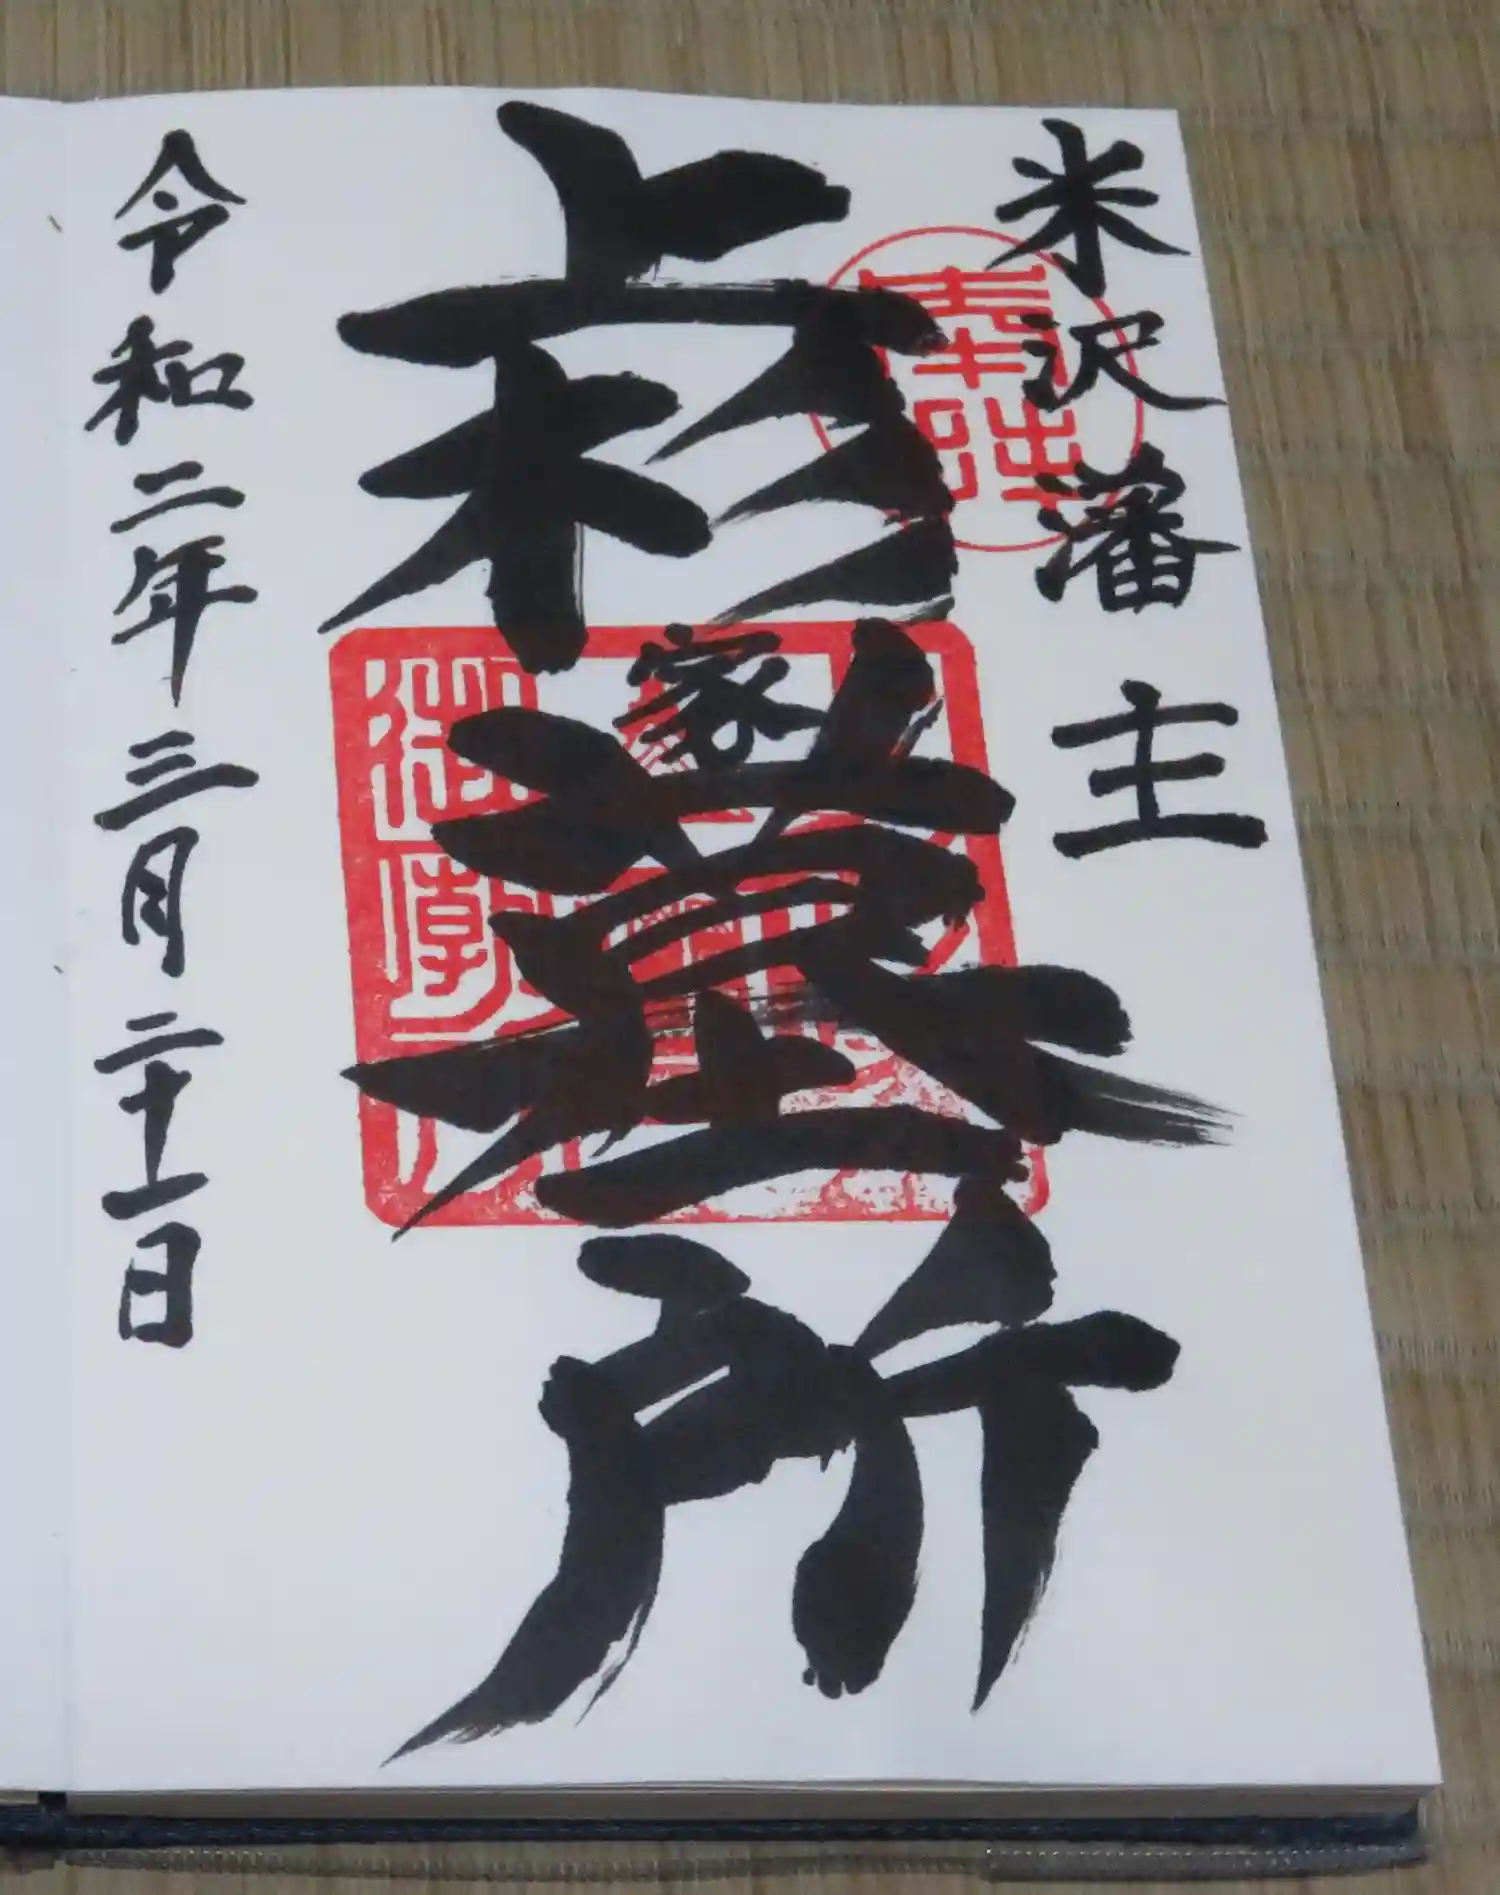 米沢藩主
上杉家墓所
令和二年三月二十一日
奉拝